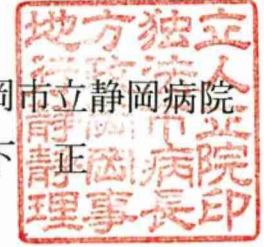 岡市立静岡病院
下 正
地方独立
行政法人
静岡市立
静岡病院
理事長印